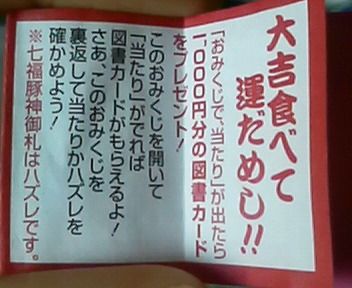 大吉食べて
運だめし!!
「おみくじで、当たり」が出たら
1,000円分の図書カード
をプレゼント!
このおみくじを開いて
「当たり」がでれば
図書カードがもらえるよ!
さあ、このおみくじを
裏返して当たりかハズレを
確かめよう!
※七福豚神御札はハズレです。